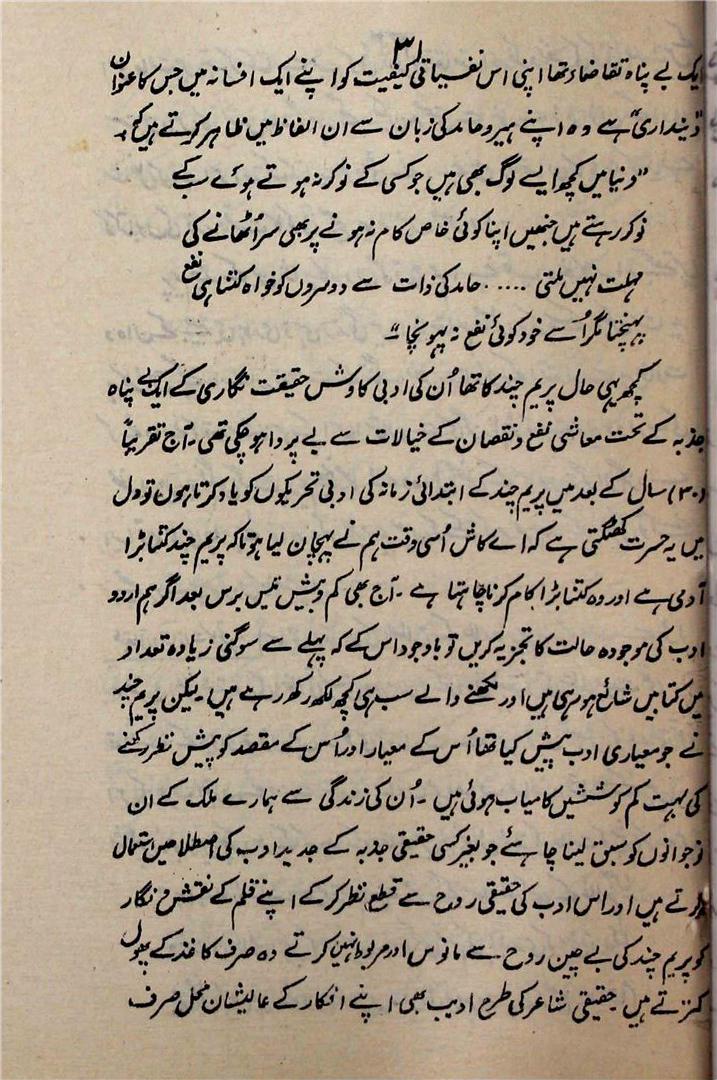 ۳۱
ایک بے پناہ تقاضاء تھا اپنی اس نفسیاتی کیفیت کو اپنے ایک افسانہ میں جس کا عنوان
"دینداری" ہے وہ اپنے ہیرو حامد کی زبان سے ان الفاظ میں ظاہر کرتے ہیں کہ
"دنیا میں کچھ ایسے لوگ بھی ہیں جو کسی کے نوکر نہ ہوتے ہوئے سب کے
نوکر رہتے ہیں جنھیں اپنا کوئی خاص کام نہ ہونے پر بھی سر اُٹھانے کی
مہلت نہیں ملتی ..... حامد کی ذات سے دوسروں کو خواہ کتنا ہی نفع
پہنچتا مگر اُسے خود کوئی نفع نہ پہونچا"
کچھ یہی حال پریم چند کا تھا اُن کی ادبی کاوش حقیقت نگاری کے ایک بے پناہ
جذبہ کے تحت معاشی نفع و نقصان کے خیالات سے بے پروا ہو چکی تھی ۔ آج تقریباً
(۳۰) سال کے بعد میں پریم چند کے ابتدائی زمانہ کی ادبی تحریکوں کو یاد کرتا ہوں تو دل
میں یہ حسرت کھٹکتی ہے کہ اے کاش اُسی وقت ہم نے پہچان لیا ہوتا کہ پریم چند کتنا بڑا
آدمی ہے اور وہ کتنا بڑا کام کرنا چاہتا ہے ۔ آج بھی کم و بیش تیس برس بعد اگر ہم اردو
ادب کی موجودہ حالت کا تجزیہ کریں تو باوجود اس کے کہ پہلے سے سوگنی زیادہ تعداد
میں کتابیں شائع ہو رہی ہیں اور لکھنے والے سب ہی کچھ لکھ رہے ہیں لیکن پریم چند
نے جو معیاری ادب پیش کیا تھا اُس کے معیار اور اُس کے مقصد کو پیش نظر رکھنے
کی بہت کم کوششیں کامیاب ہوئی ہیں ۔ اُن کی زندگی سے ہمارے ملک کے ان
نوجوانوں کو سبق لینا چاہئے جو بغیر کسی حقیقی جذبہ کے جدید ادب کی اصطلاحیں استعمال
کرتے ہیں اور اس ادب کی حقیقی روح سے قطع نظر کر کے اپنے قلم کے نقش و نگار
کو پریم چند کی بے چین روح سے مانوس اور مربوط نہیں کرتے وہ صرف کاغذ کے پھول
کترتے ہیں حقیقی شاعر کی طرح ادیب بھی اپنے افکار کے عالیشان محل صرف